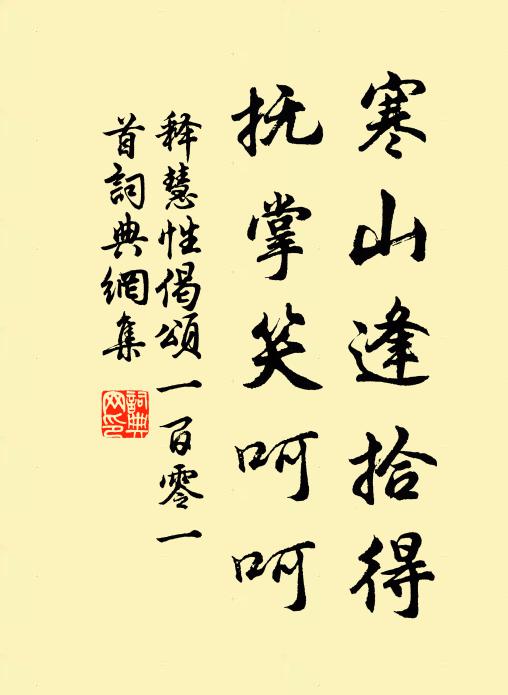 寒山逢拾得
抚掌笑呵呵
释慧性偈颂一百零一
首詞典網集
詞典
网印